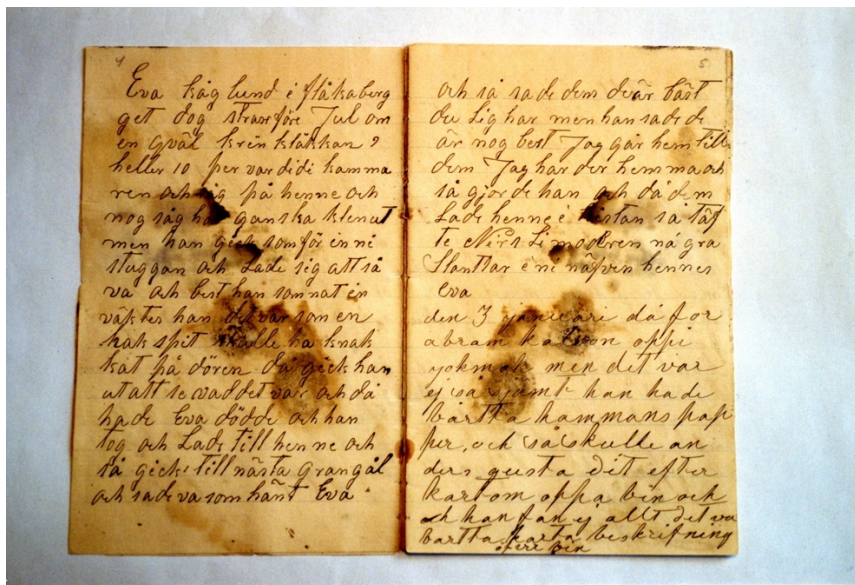 4
Eva Häglund i flåkaberg
get dog strax före Jul om
en qväl kren klåkkan 9
heller 10 per var didi kamma
ren och sig på henne och
nog såg ganska klenut
men han geck som för in ni
stuggan och Lade sig att så
va och best han somnat in
väktes han det var som en
hakspit skulle ha knak
kat på dören då geck han
ut att se vad det var och då
hade Eva dödde och han
tog och Lade till henne och
så geck till nästa grangål
och sade va som hänt Eva
5
och så sade dem dvär bäst
du Lig här men han sade de
är nog best Jag går hem till
dem Jag har der hemma och
så gjorde han och då dem
Lade henne i kistan så täf
te Nirs Limodren några
Slantsar i ni näfven hennes
Eva
den 3 januari då for
abram karlson oppi
yokmok men det var
ej så jämt han hade
bartta hammans pap
per, och så skulle an
ders gusta dit efter
kartom oppa bin och
och han fan ej allt det va
bartta karta beskrifning
öfver bin